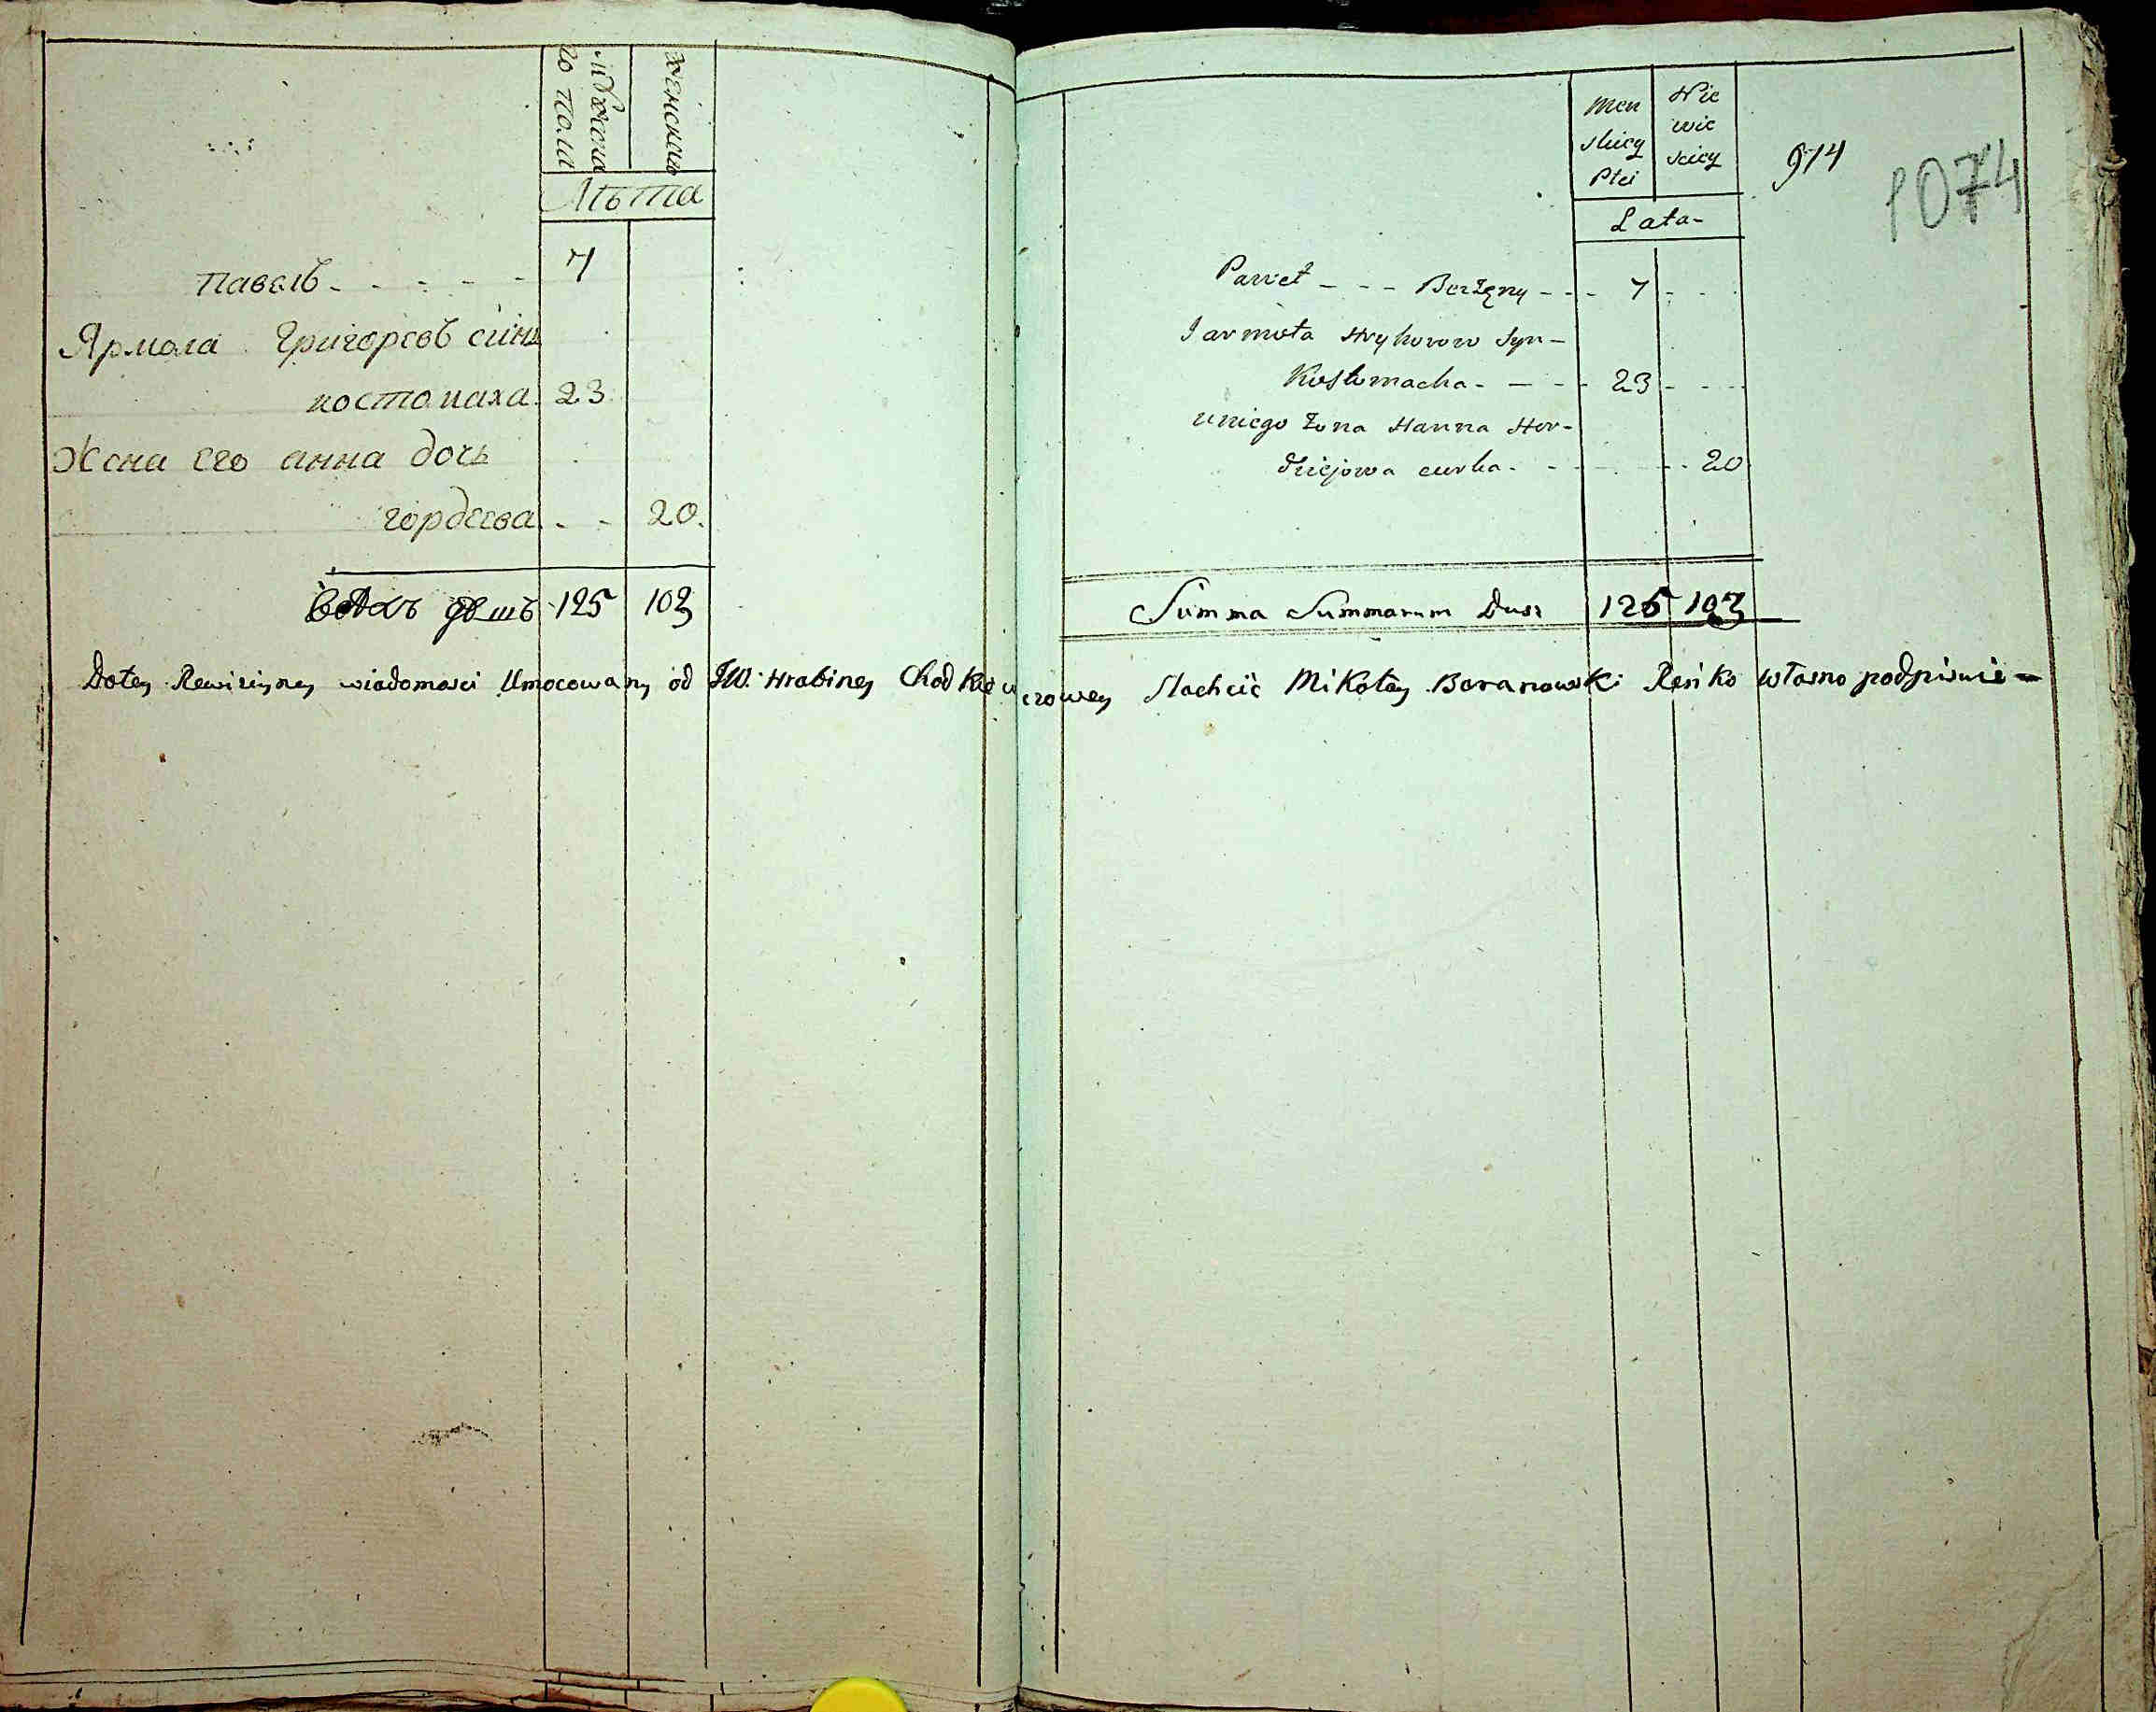 мужеска
го пола
женска
Лѣта
павелъ - - - - - 7
Ярмола Григоревъ синъ
костомаха 23
Жена его анна дочь
гордеева - - 20.
душъ 125 103
Men
skiey
Płci
Nie
wie
sciey
974
1074
Lata-
Paweł - - - Bezżęny - - - 7 - -
Jarmoła Hryhorow Syn-
Kostomacha - - - - 23 - - -
uniego Żona Hanna Hor-
dziejowa curka - - - - - 20
Summa Summarum Dusz 125 103
Dotey Rewizyiney wiadomosci Umocowany od JW. Hrabiney Chodkiewiczowey Slachcic Mikołay Baranowski Renko własno podpisuie -